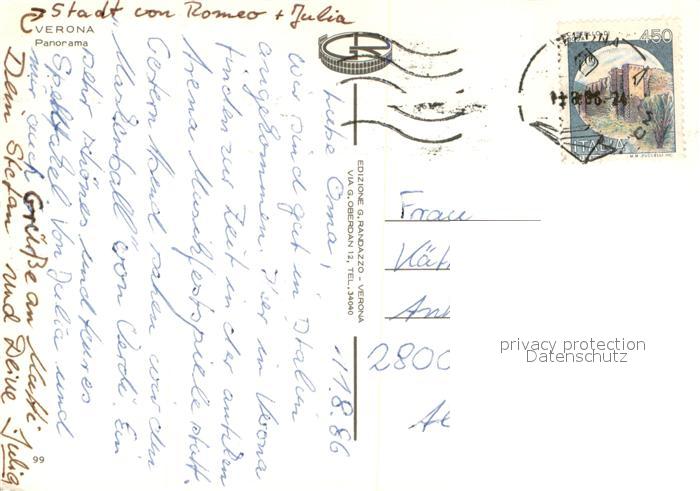 → Stadt von Romeo + Julia
VERONA
Panorama
11.8.86
Liebe Oma!
Wir sind gut in Italien
angekommen. Hier in Verona
finden zur Zeit in der antiken
Arena Musikfestspiele statt.
Gestern Abend sahen wir den
"Maskenball" von Verdi. Ein
sehr schönes und teures
Spektakel. Von Julia und
mir auch Grüße an Mutti.
Dein Stefan und Deine Julia
99
EDIZIONE G. RANDAZZO - VERONA
VIA G. OBERDAN 12, TEL. 34040
450
ITALIA
Frau
Kät
An
2800
privacy protection
Datenschutz